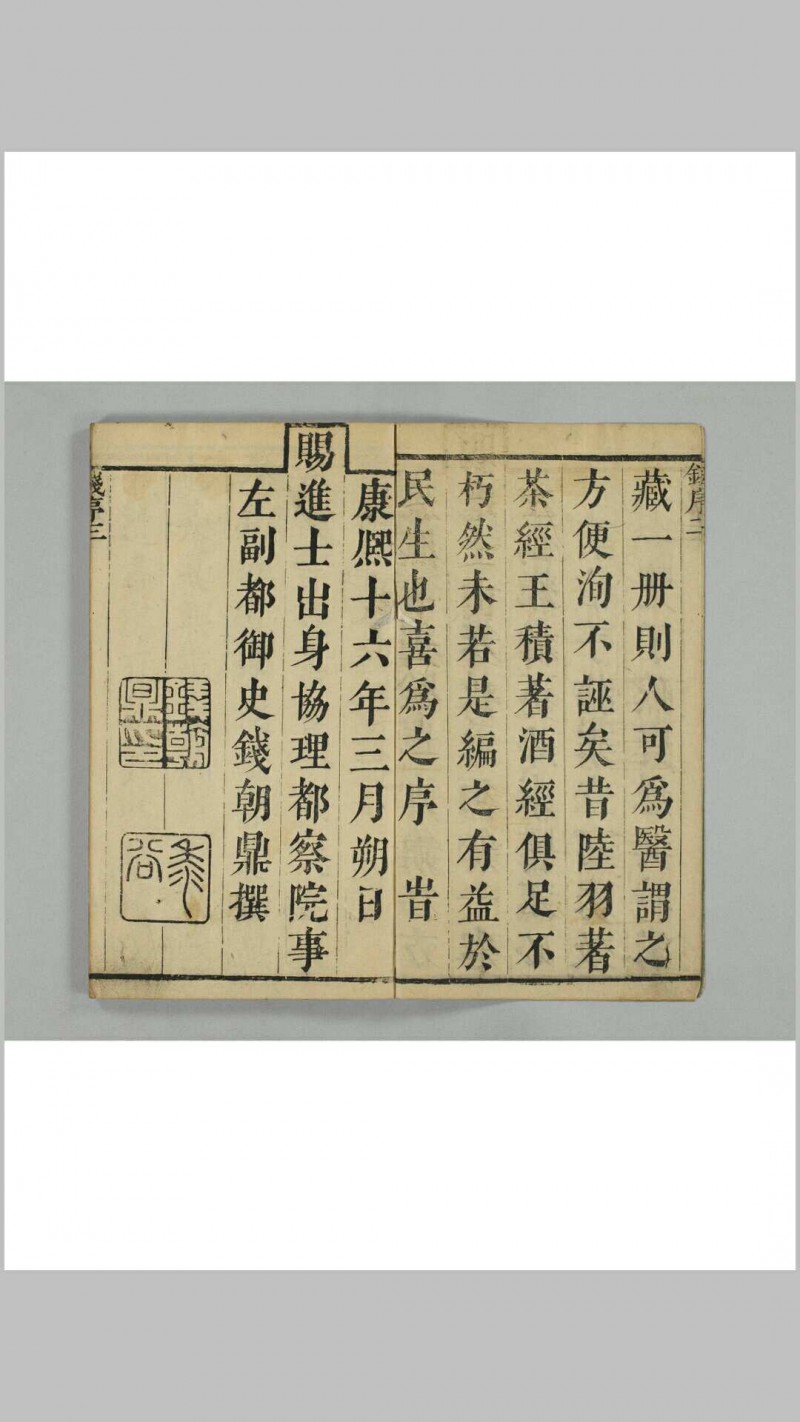 錢序二
藏一册則人可爲醫謂之
方便洵不誣矣昔陸羽著
茶經王積著酒經俱足不
朽然未若是編之有益於
民生也喜爲之序 旹
康熈十六年三月朔日
賜進士出身協理都察院事
左副都御史錢朝鼎撰
錢朝鼎印
黍谷
錢序三